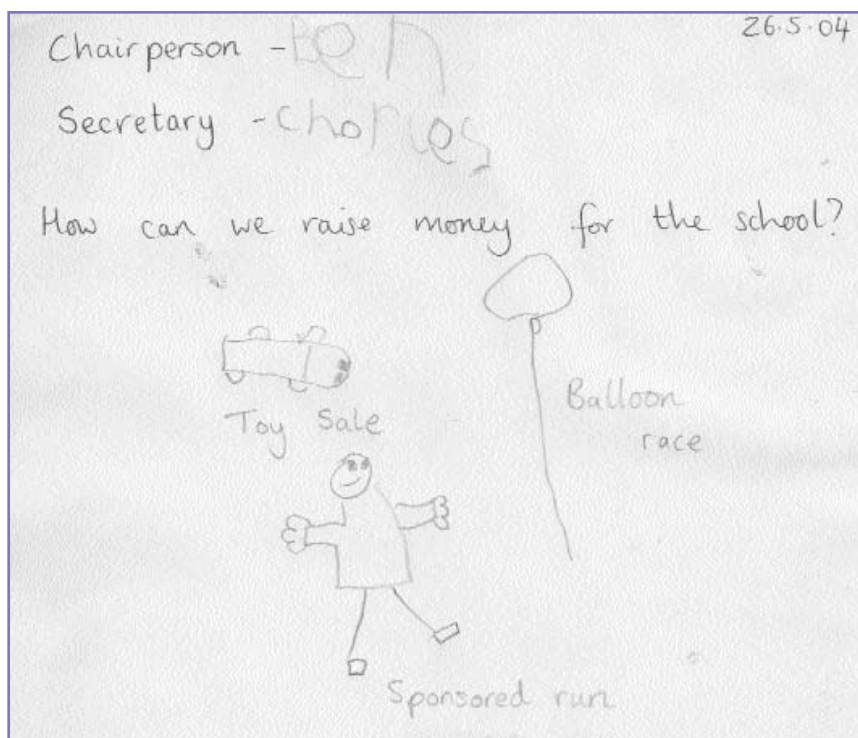 26.5.04
Chairperson - Ben
Secretary - Charles
How can we raise money for the school?
Toy Sale
Balloon
race
Sponsored run